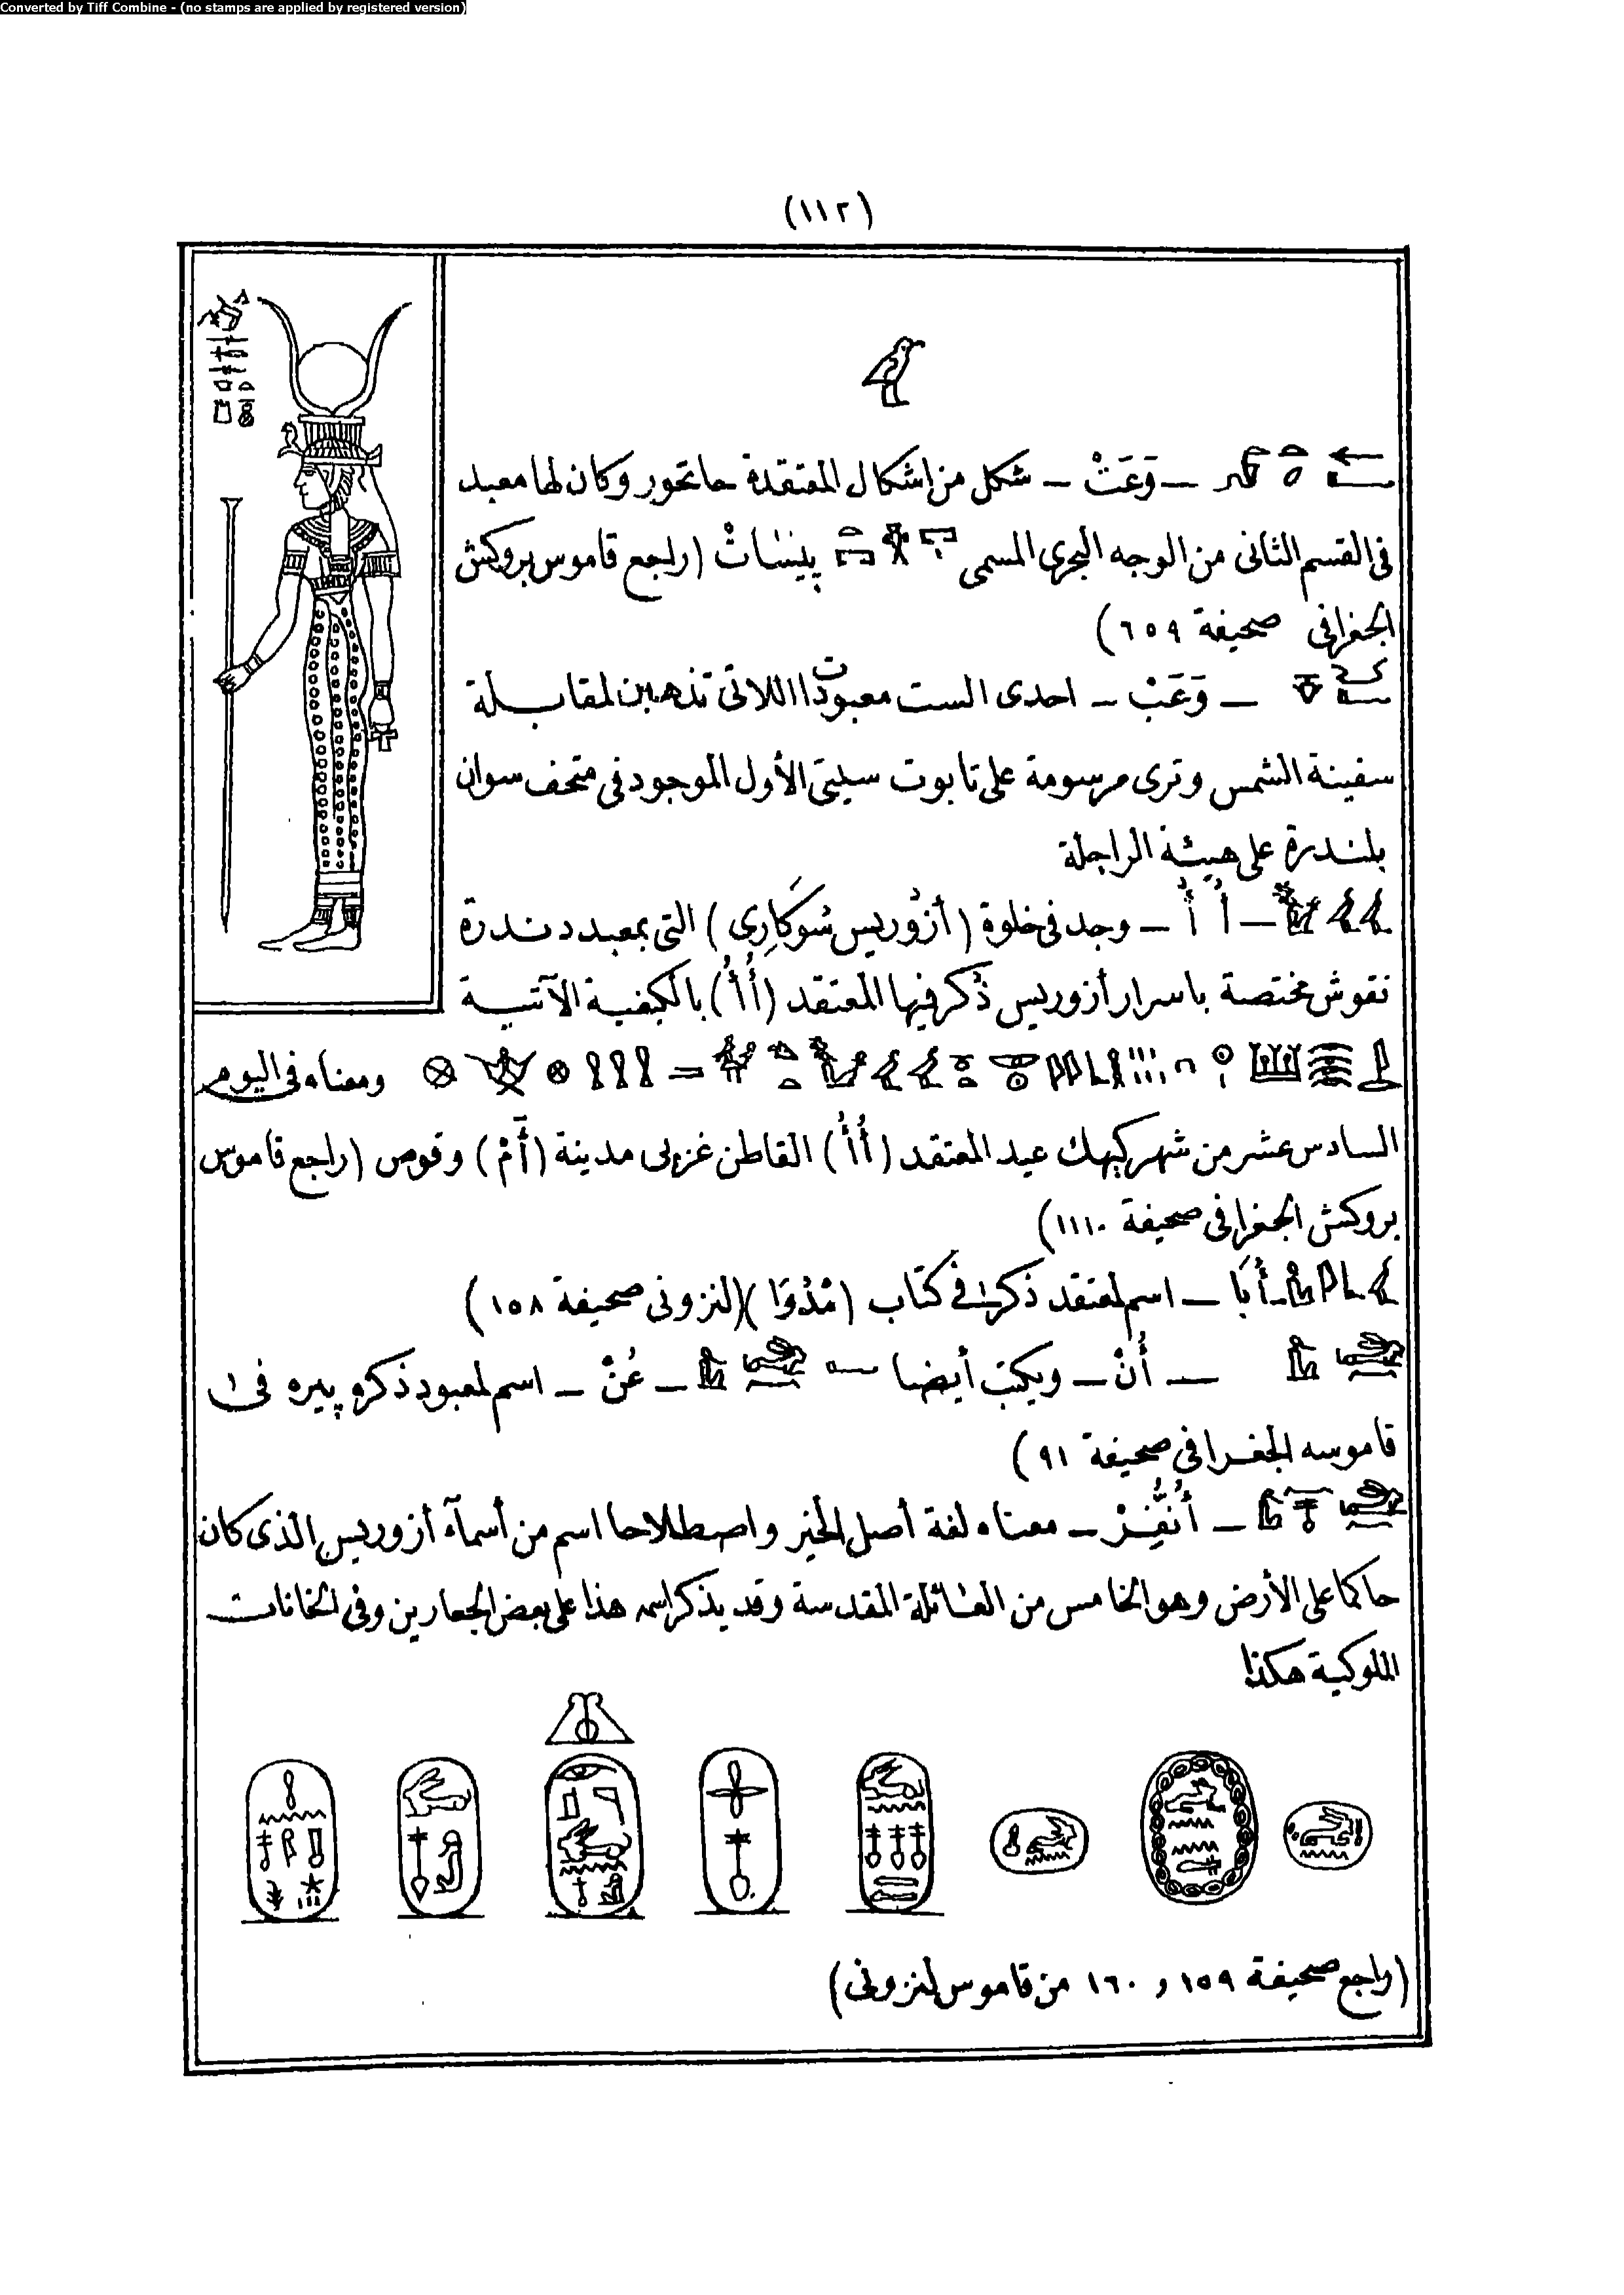 Converted by Tiff Combine - (no stamps are applied by registered version)
(١١٢)
ــ وَعَتْ ــ شكل من اشكال المعتقدة حاتحور وكان لها معبد
فى القسم الثانى من الوجه البحرى المسمى پينسات (راجع قاموس بروكش
الجغرافى صحيفة ٦٥٩)
ــ وَعَبْ ــ احدى الست معبودات اللاتى تذهبن لمقابلة
سفينة الشمس وترى مرسومة على تابوت سيتى الأول الموجود فى متحف سوان
بلندرة على هيئة الراجلة
ــ أُ أُ ــ وجد فى خلوة (أزوريس سُوكَارِى) التى بمعبد دندرة
نقوش مختصة باسرار أزوريس ذُكر فيها المعتقد (أُأُ) بالكيفية الآتية
ومعناه فى اليوم
السادس عشر من شهر كيهك عيد المعتقد (أُأُ) القاطن غربى مدينة (أَمْ) وقوص (راجع قاموس
بروكش الجغرافى صحيفة ١١١٠)
ــ أُبَا ــ اسم لمعتقد ذكر فى كتاب (لنزونى صحيفة ١٥٨)
ــ أُنْ ــ ويكتب أيضا ــ عُنْ ــ اسم لمعبود ذكره پيره فى
قاموسه الجغرافى صحيفة ٩١)
ــ أُنفِرْ ــ معناه لغة أصل الخير واصطلاحا اسم من أسمآء أزوريس الذى كان
حاكما على الأرض وهو الخامس من العائلة المقدسة وقد يذكر اسمه هذا على بعض الجعارين وفى الخانات
الملوكية هكذا
(راجع صحيفة ١٥٩ و ١٦٠ من قاموس لنزونى)